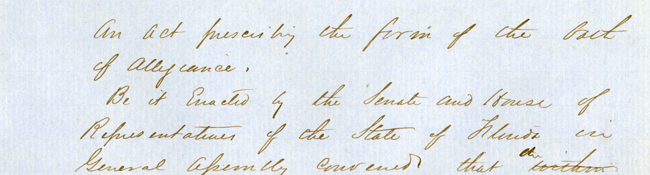 An Act prescribing the form of the Oath
of Allegiance.
Be it Enacted by the Senate and House of
Representatives of the State of Florida in
General Assembly convened that the within